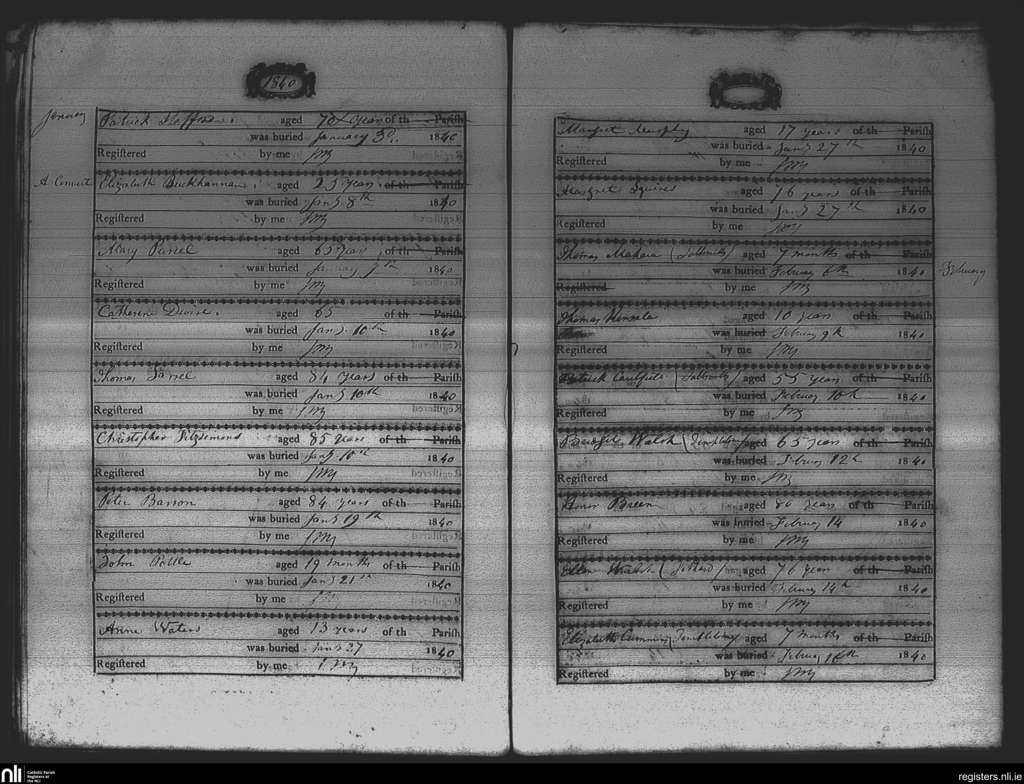 1840
January
Patrick aged 70 years of th Parish
was buried January 3d. 1840
Registered by me JM
A Convert Elizabeth Buckhannan aged 25 years of th Parish
was buried Jany 8th 1840
Registered by me JM
Mary Pursel aged 65 years of th Parish
was buried January 1840
Registered by me JM
Catherine Devise. aged 65 of th Parish
was buried Jany. 10th 1840
Registered by me JM
Thomas aged 84 years of th Parish
was buried Jany 10th 1840
Registered by me JM
Christopher Fitzsemond aged 85 years of th Parish
was buried Jany 10th 1840
Registered by me JM
Peter Barron aged 84 years of th Parish
was buried Jany 19th 1840
Registered by me JM
John Pottle aged 19 months of th Parish
was buried Jany 21st 1840
Registered by me JM
Anne Waters aged 13 years of th Parish
was buried Jany 27 1840
Registered by me JM
Margret Murphy aged 17 years of th Parish
was buried Jany 27th 1840
Registered by me JM
Margret Squires aged 76 years of th Parish
was buried Jany 27th 1840
Registered by me JM
Thomas Mahara aged 7 months of th Parish
was buried February 6th 1840 February
Registered by me JM
Thomas Kinsela aged 10 years of th Parish
was buried February 9th 1840
Registered by me JM
Patrick Caulfield aged 55 years of th Parish
was buried February 10th 1840
Registered by me JM
Walsh aged 65 years of th Parish
was buried February 12th 1840
Registered by me JM
Breen aged 80 years of th Parish
was buried February 14 1840
Registered by me JM
Ellen Walsh aged 76 years of th Parish
was buried February 14th 1840
Registered by me JM
Elizabeth Cumming aged 7 months of th Parish
was buried February 16th 1840
Registered by me JM
nli Catholic Parish Registers at the NLI
registers.nli.ie